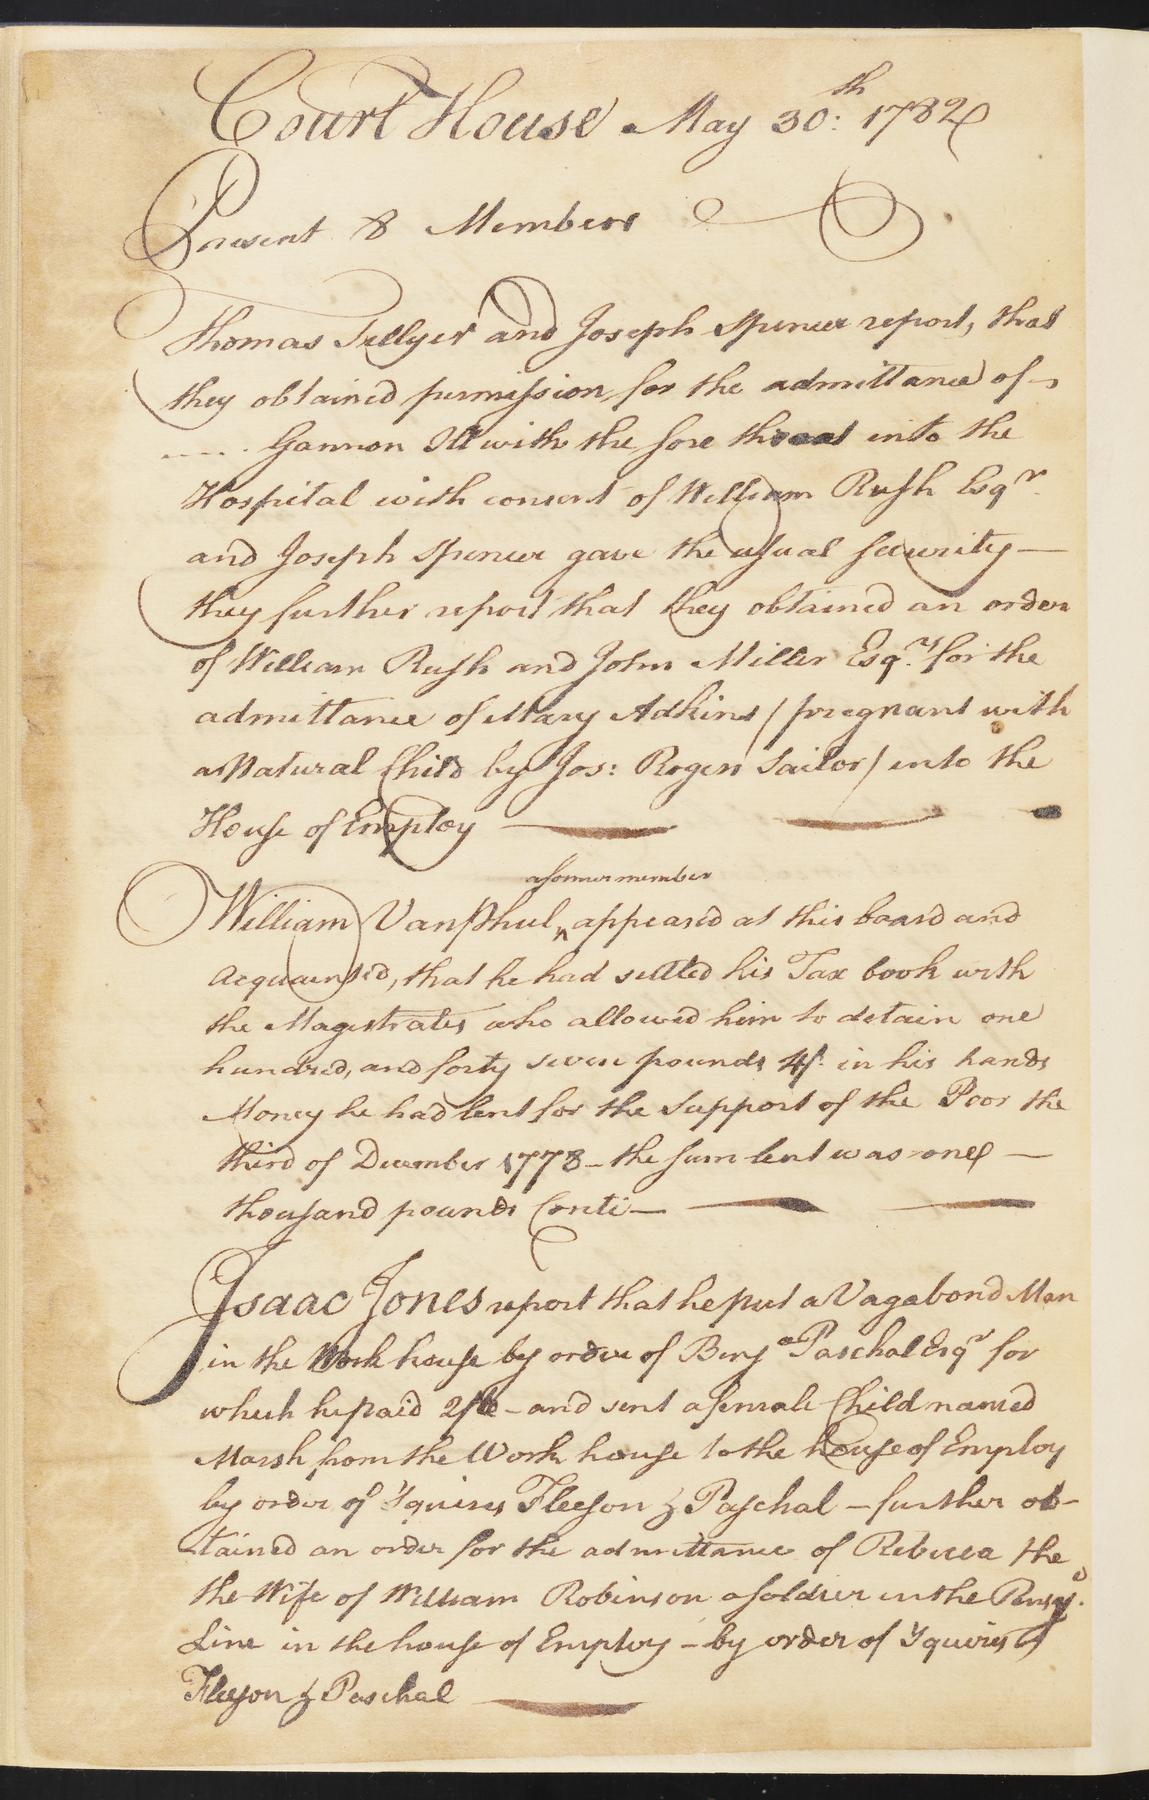 Court House May 30:th 1782
Present 8 Members
Thomas Tillyer and Joseph Spencer report, that
they obtained permission for the admittance of
---- Gannon Ill with the sore throat into the
Hospital with consent of William Rush Esqr.
and Joseph Spencer gave the usual security —
they further report that they obtained an order
of William Rush and John Miller Esq.rs for the
admittance of Mary Adkins / pregnant with
a Natural Child by Jos: Rogers Sailor / into the
House of Employ —
a former member
William VanPhul ^ appeared at this board and
Acquainted, that he had settled his Tax book with
the Magistrates who allowed him to detain one
hundred, and forty seven pounds 4/. in his hands
Money he had lent for the Support of the Poor the
third of December 1778 – the sum lent was one —
thousand pounds Conti —
Isaac Jones report that he put a Vagabond Man
in the Work house by order of Benja Paschal Esqr for
which he paid 2/6 – and sent a female Child named
Marsh from the Work house to the house of Employ
by order of 'Squires Fleeson & Paschal – further ob-
tained an order for the admittance of Rebecca the
the Wife of William Robinson a soldier in the Pensya.
Line in the house of Employ – by order of 'Squires
Fleeson & Paschal